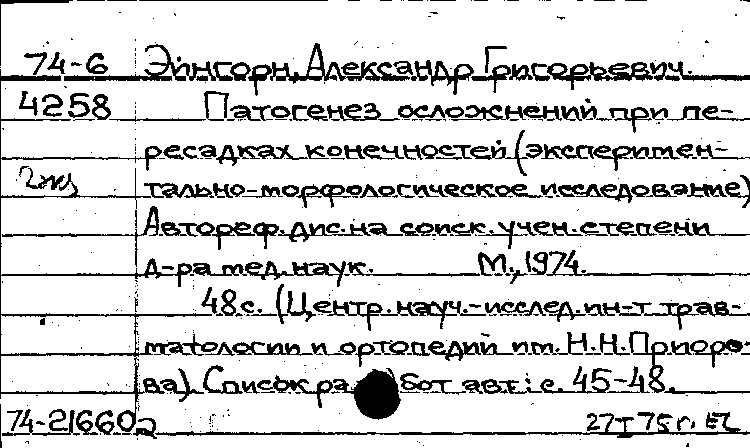 74-6 Эйнгорн, Александр Григорьевич.
4258 Патогенез осложнений при пе-
ресадках конечностей (эксперимен-
2 экз тально-морфологическое исследование)
Автореф. дис. на соиск. учен. степени
д-ра мед. наук. М., 1974.
48 с. (Центр. науч.-исслед. ин-т трав-
матологии и ортопедии им. Н.Н. Приоро-
ва). Список ра бот авт.: с. 45-48.
74-21660а 27т 75г.